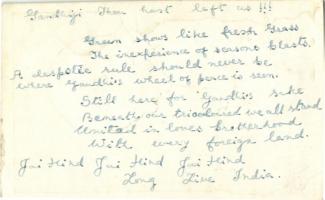 Gandhiji Thou hast left us !!!
Green shows like fresh Grass
The inexperience of seasons blasts.
A despotic rule should never be
where Gandhi's wheel of peace is seen.
Still here for Gandhi's sake
Beneath our tricoloured we all stand
United in loves brotherhood
With every foreign land.
Jai Hind Jai Hind Jai Hind
Long Live India.